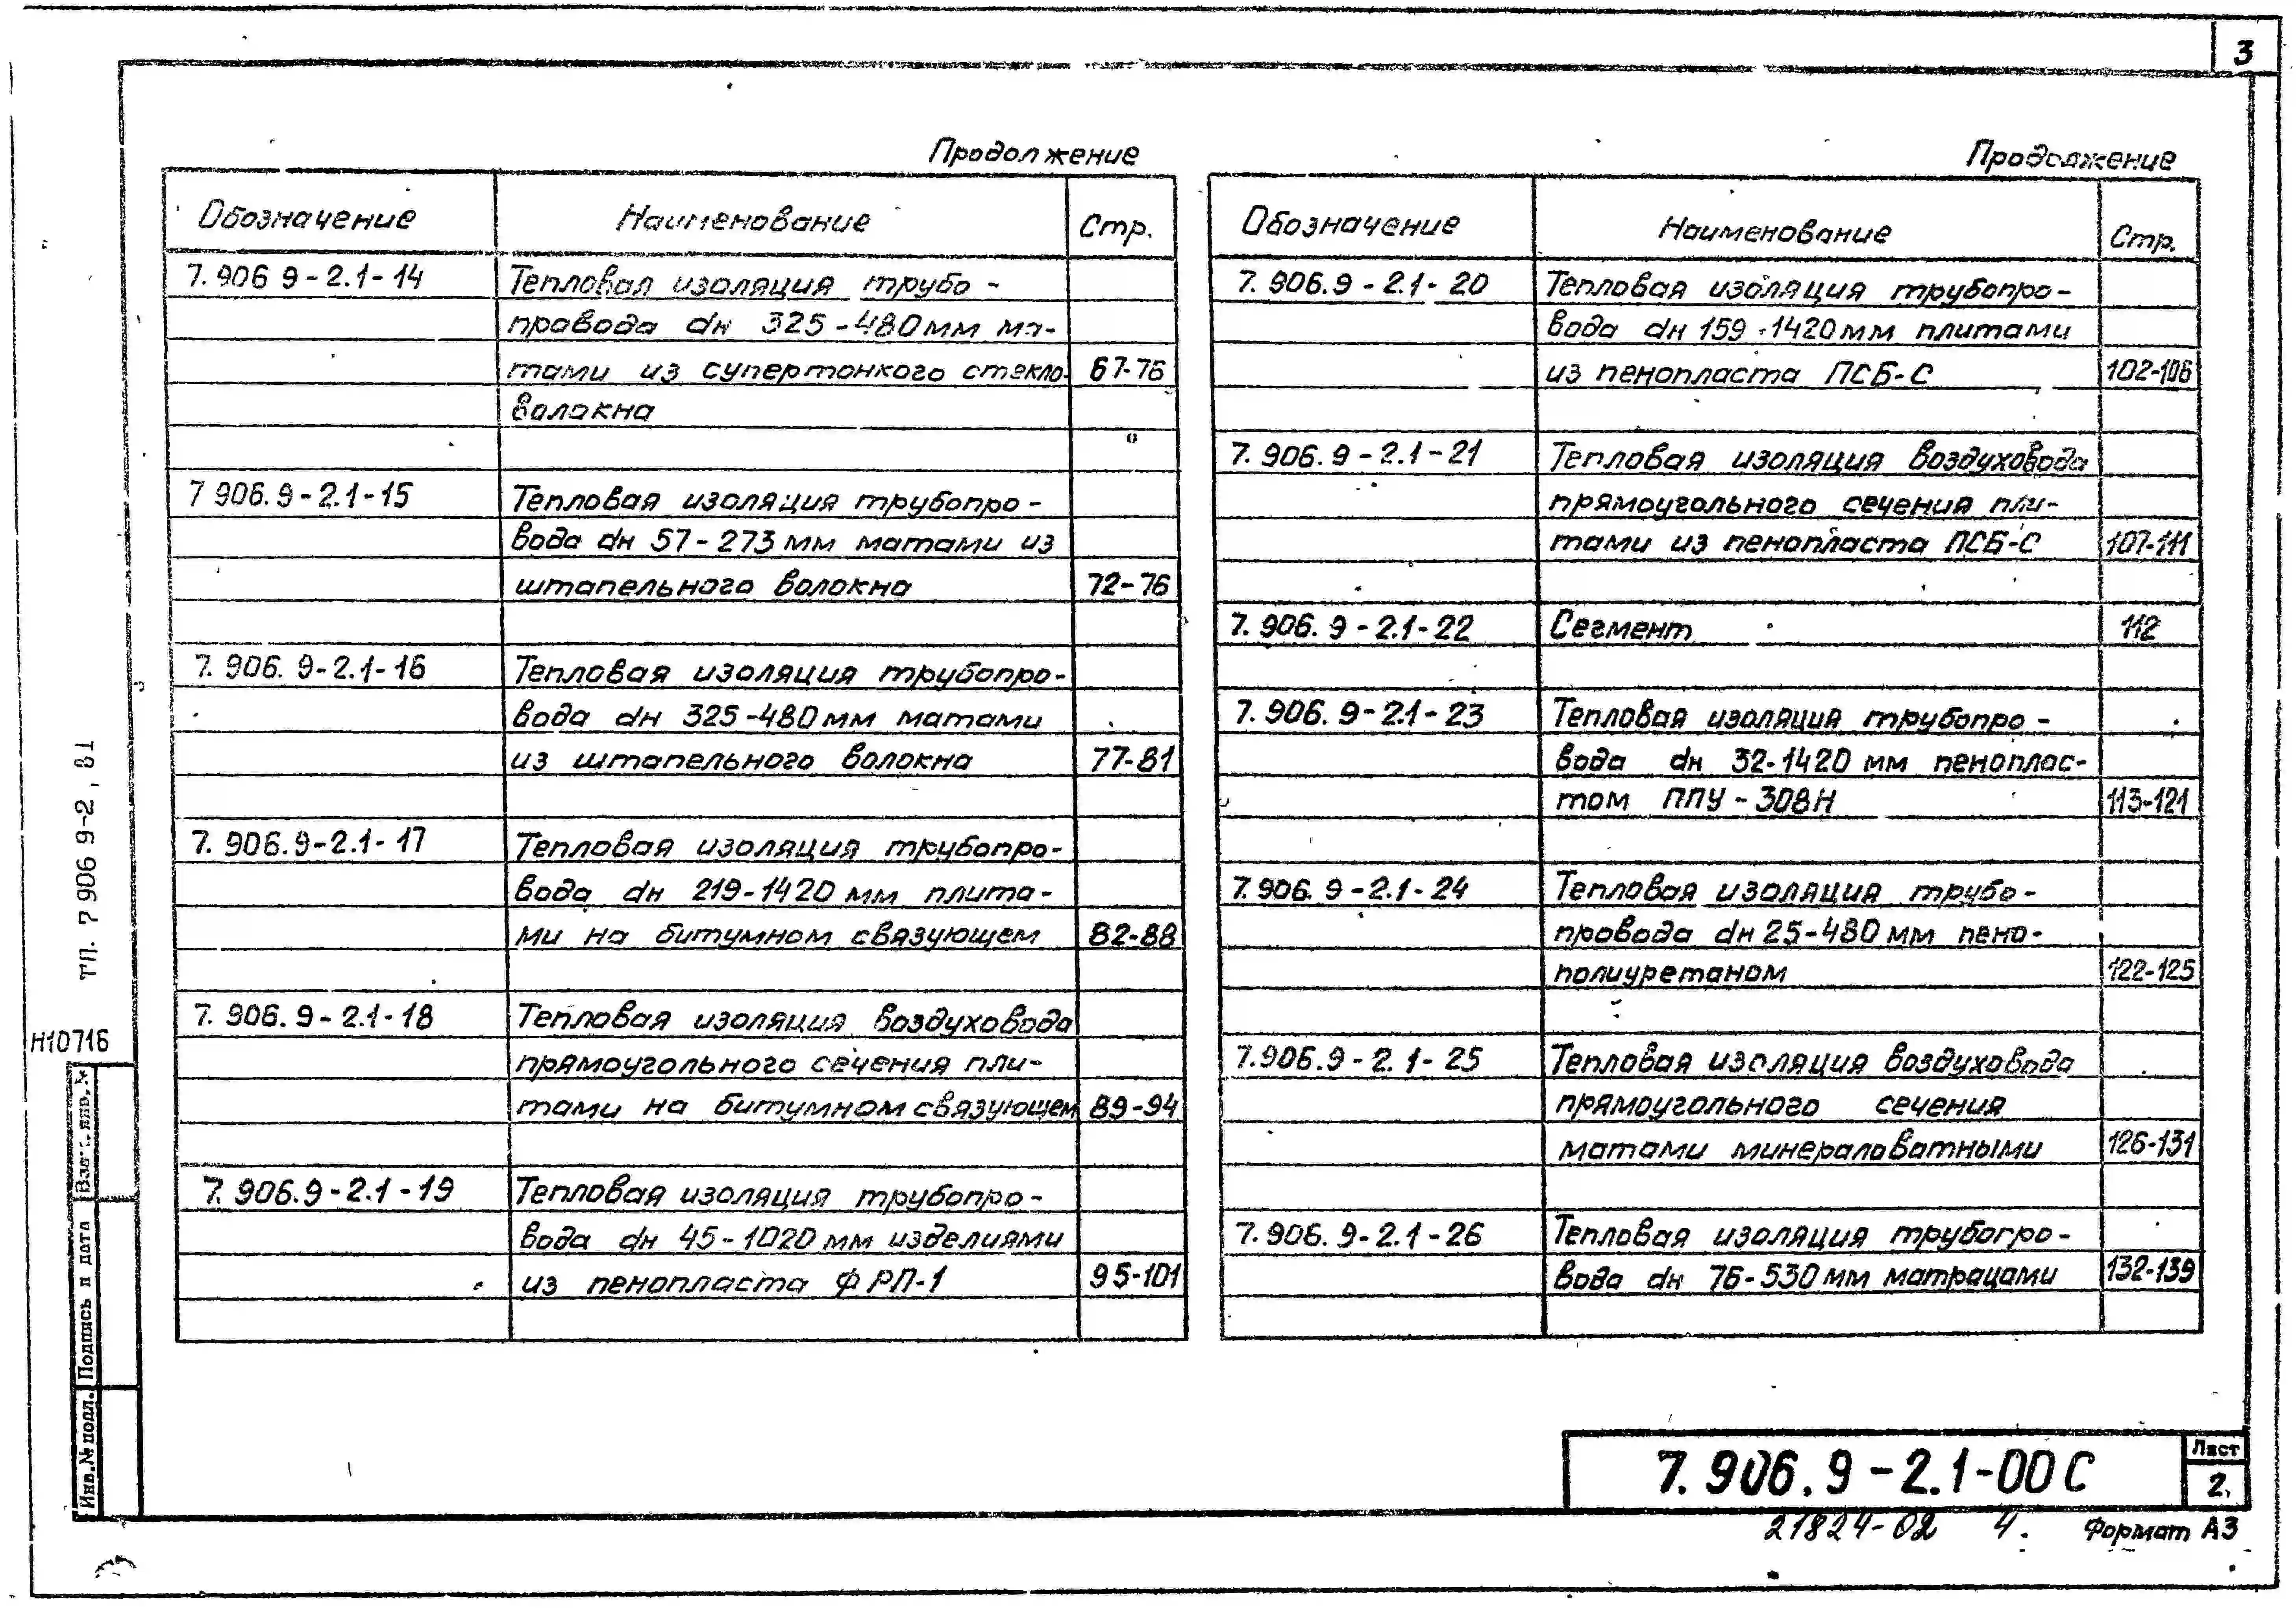 3
Продолжение
Обозначение Наименование Стр.
7.906 9-2.1-14 Тепловая изоляция трубо-
провода dн 325-480мм ма-
тами из супертонкого стекло- 67-76
волокна
7 906.9-2.1-15 Тепловая изоляция трубопро-
вода dн 57-273 мм матами из
штапельного волокна 72-76
7.906.9-2.1-16 Тепловая изоляция трубопро-
вода dн 325-480мм матами
из штапельного волокна 77-81
7.906.9-2.1-17 Тепловая изоляция трубопро-
вода dн 219-1420 мм плита-
ми на битумном связующем 82-88
7.906.9-2.1-18 Тепловая изоляция воздуховода
прямоугольного сечения пли-
тами на битумном связующем 89-94
7.906.9-2.1-19 Тепловая изоляция трубопро-
вода dн 45-1020 мм изделиями
из пенопласта ФРП-1 95-101
Продолжение
Обозначение Наименование Стр.
7.906.9-2.1-20 Тепловая изоляция трубопро-
вода dн 159÷1420мм плитами
из пенопласта ПСБ-С 102-106
7.906.9-2.1-21 Тепловая изоляция воздуховода
прямоугольного сечения пли-
тами из пенопласта ПСБ-С 107-111
7.906.9-2.1-22 Сегмент 112
7.906.9-2.1-23 Тепловая изоляция трубопро-
вода dн 32-1420 мм пеноплас-
том ППУ-308Н 113-121
7.906.9-2.1-24 Тепловая изоляция трубо-
провода dн 25-480 мм пено-
полиуретаном 122-125
7.906.9-2.1-25 Тепловая изоляция воздуховода
прямоугольного сечения
матами минераловатными 126-131
7.906.9-2.1-26 Тепловая изоляция трубопро-
вода dн 76-530мм матрацами 132-139
ТП. 7 906 9-2, В1
Н10716
Взам. инв. №
Подпись и дата
Инв.№ подл.
7.906.9-2.1-00 С
Лист
2
21824-02 4.
Формат А3